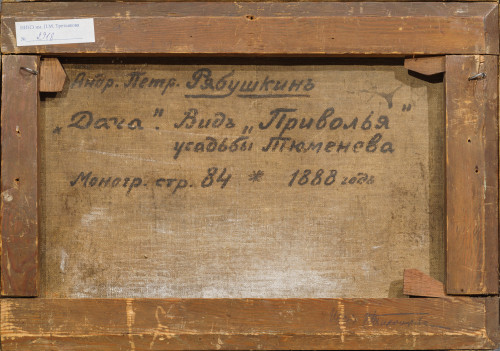 № 2918
Андр. Петр. Рябушкинъ
„Дача". Видъ „Приволья"
усадьбы Тюменева
Моногр. стр. 84 * 1888 годъ